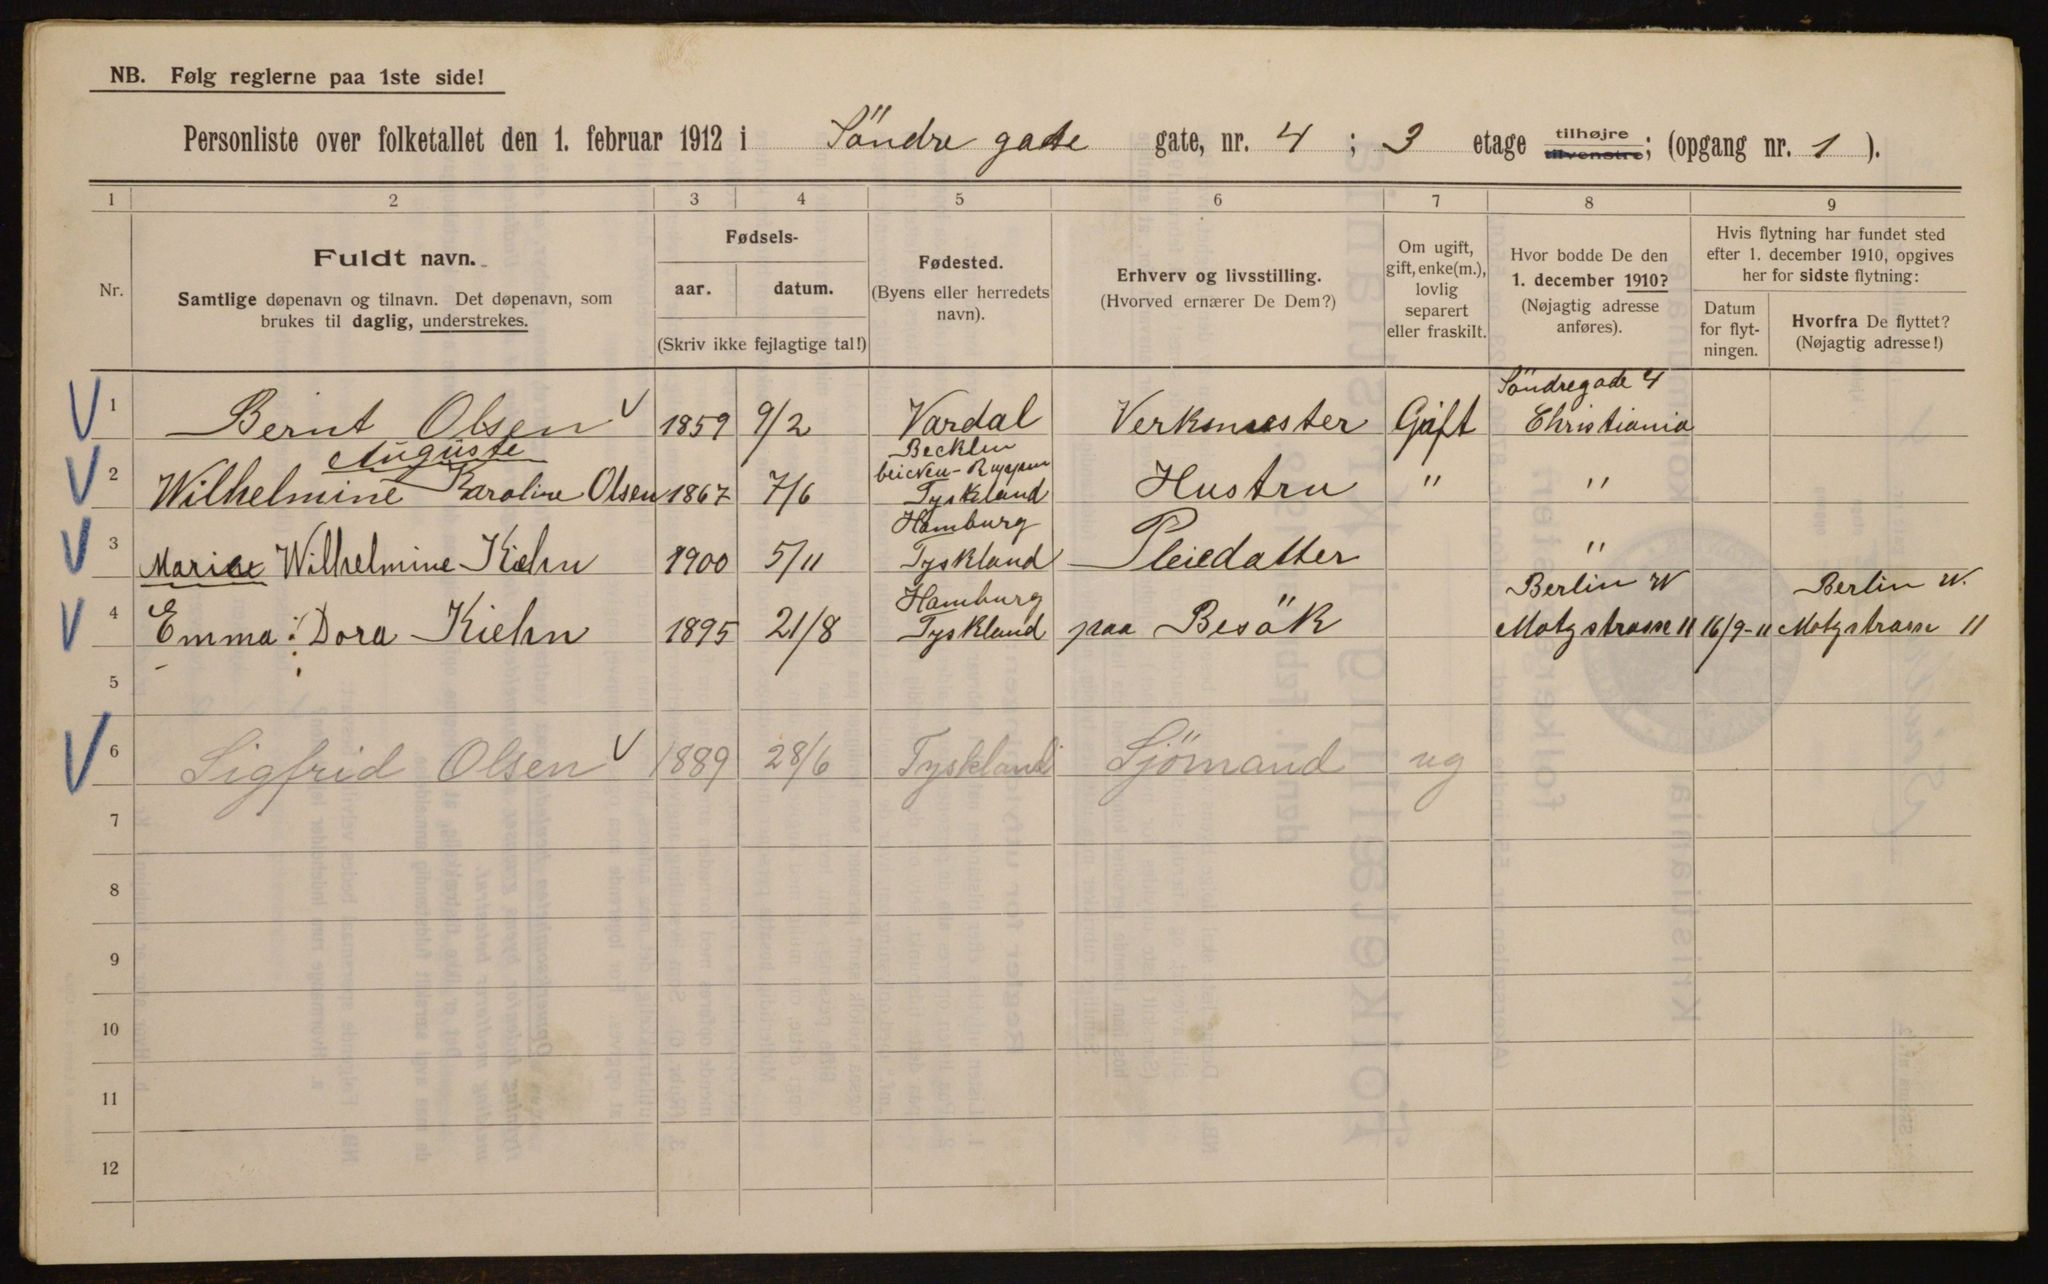 NB. Følg reglerne paa 1ste side!
Personliste over folketallet den 1. februar 1912 i Söndre gade gate, nr. 4 ; 3 etage tilhøjre tilvenstre; (opgang nr. 1 ).
1 2 3 4 5 6 7 8 9
Nr.
Fuldt navn.
Samtlige døpenavn og tilnavn. Det døpenavn, som
brukes til daglig, understrekes.
Fødsels-
aar. datum.
(Skriv ikke fejlagtige tal!)
Fødested.
(Byens eller herredets
navn).
Erhverv og livsstilling.
(Hvorved ernærer De Dem?)
Om ugift,
gift, enke(m.),
lovlig
separert
eller fraskilt.
Hvor bodde De den
1. december 1910?
(Nøjagtig adresse
anføres).
Hvis flytning har fundet sted
efter 1. december 1910, opgives
her for sidste flytning:
Datum
for flyt-
ningen.
Hvorfra De flyttet?
(Nøjagtig adresse!)
Söndregade 4
1 Bernt Olsen 1859 9/2 Vardal Verkmester Gift Christiania
Auguste
2 Wilhelmine Karoline Olsen 1867 7/6 Tyskland Hustru " "
Hamburg
3 Marie Wilhelmine Kiehn 1900 5/11 Tyskland Pleiedatter "
Hamburg Berlin W Berlin W.
4 Emma Dora Kiehn 1895 21/8 Tyskland paa Besök Motzstrasse 11 16/9-11 Motzstrasse 11
5
6 Sigfrid Olsen 1889 28/6 Tyskland Sjömand ug
7
8
9
10
11
12